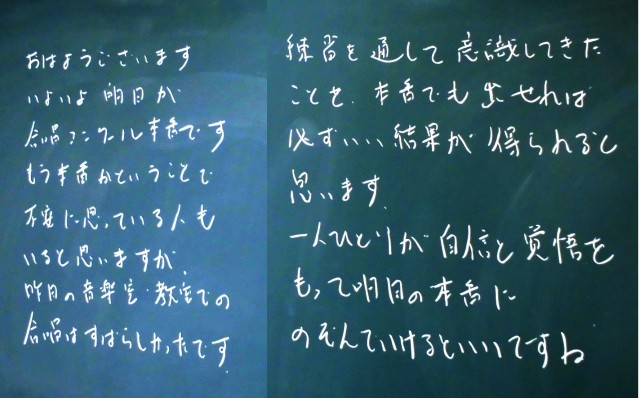 おはようございます
いよいよ明日が
合唱コンクール本番です
もう本番かということで
不安に思っている人も
いると思いますが、
昨日の音楽室・教室での
合唱はすばらしかったです。
練習を通して意識してきた
ことを、本番でも出せれば
必ずいい結果が得られると
思います。
一人ひとりが自信と覚悟を
もって明日の本番に
のぞんでいけるといいですね